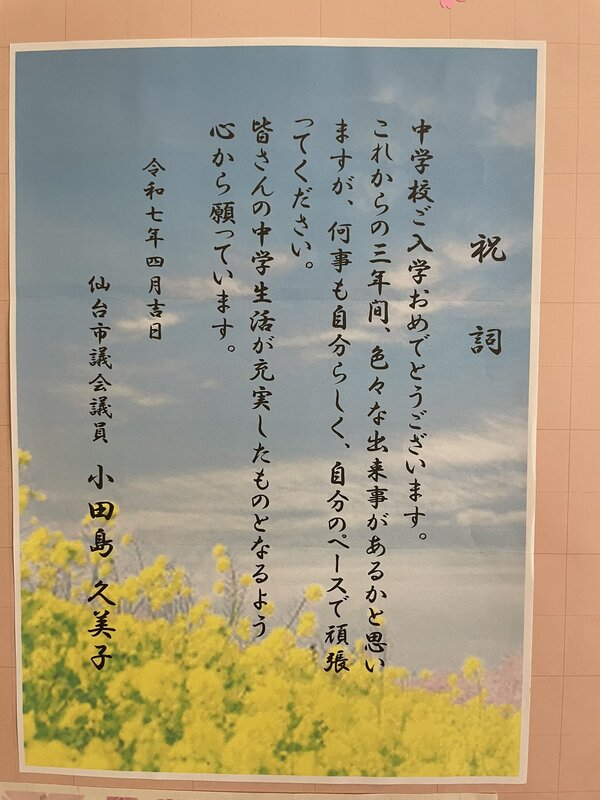 祝詞
中学校ご入学おめでとうございます。
これからの三年間、色々な出来事があるかと思い
ますが、何事も自分らしく、自分のペースで頑張
ってください。
皆さんの中学生活が充実したものとなるよう
心から願っています。
令和七年四月吉日
仙台市議会議員 小田島 久美子